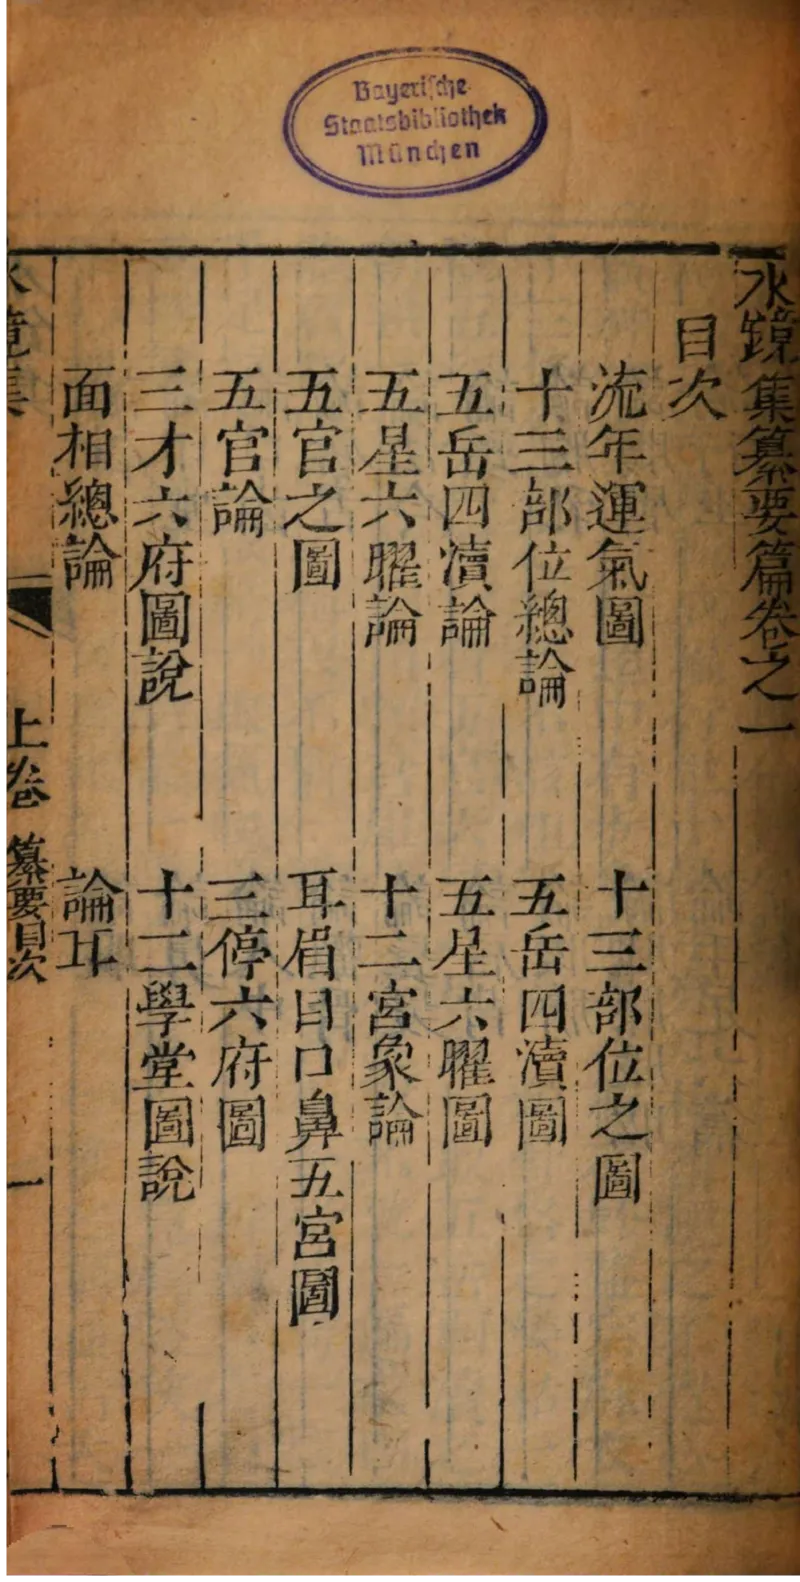 Bayerische
Staatsbibliothek
München
水鏡集纂要篇卷之一
目次
流年運氣圖 十三部位之圖
十三部位總論 五岳四瀆圖
五岳四瀆論 五星六曜圖
五星六曜論 十二宮象論
五官之圖 耳眉目口鼻五宮圖
五官論 三停六府圖
三才六府圖說 十二學堂圖說
面相總論 論耳
水鏡集 上卷 纂要目次 一